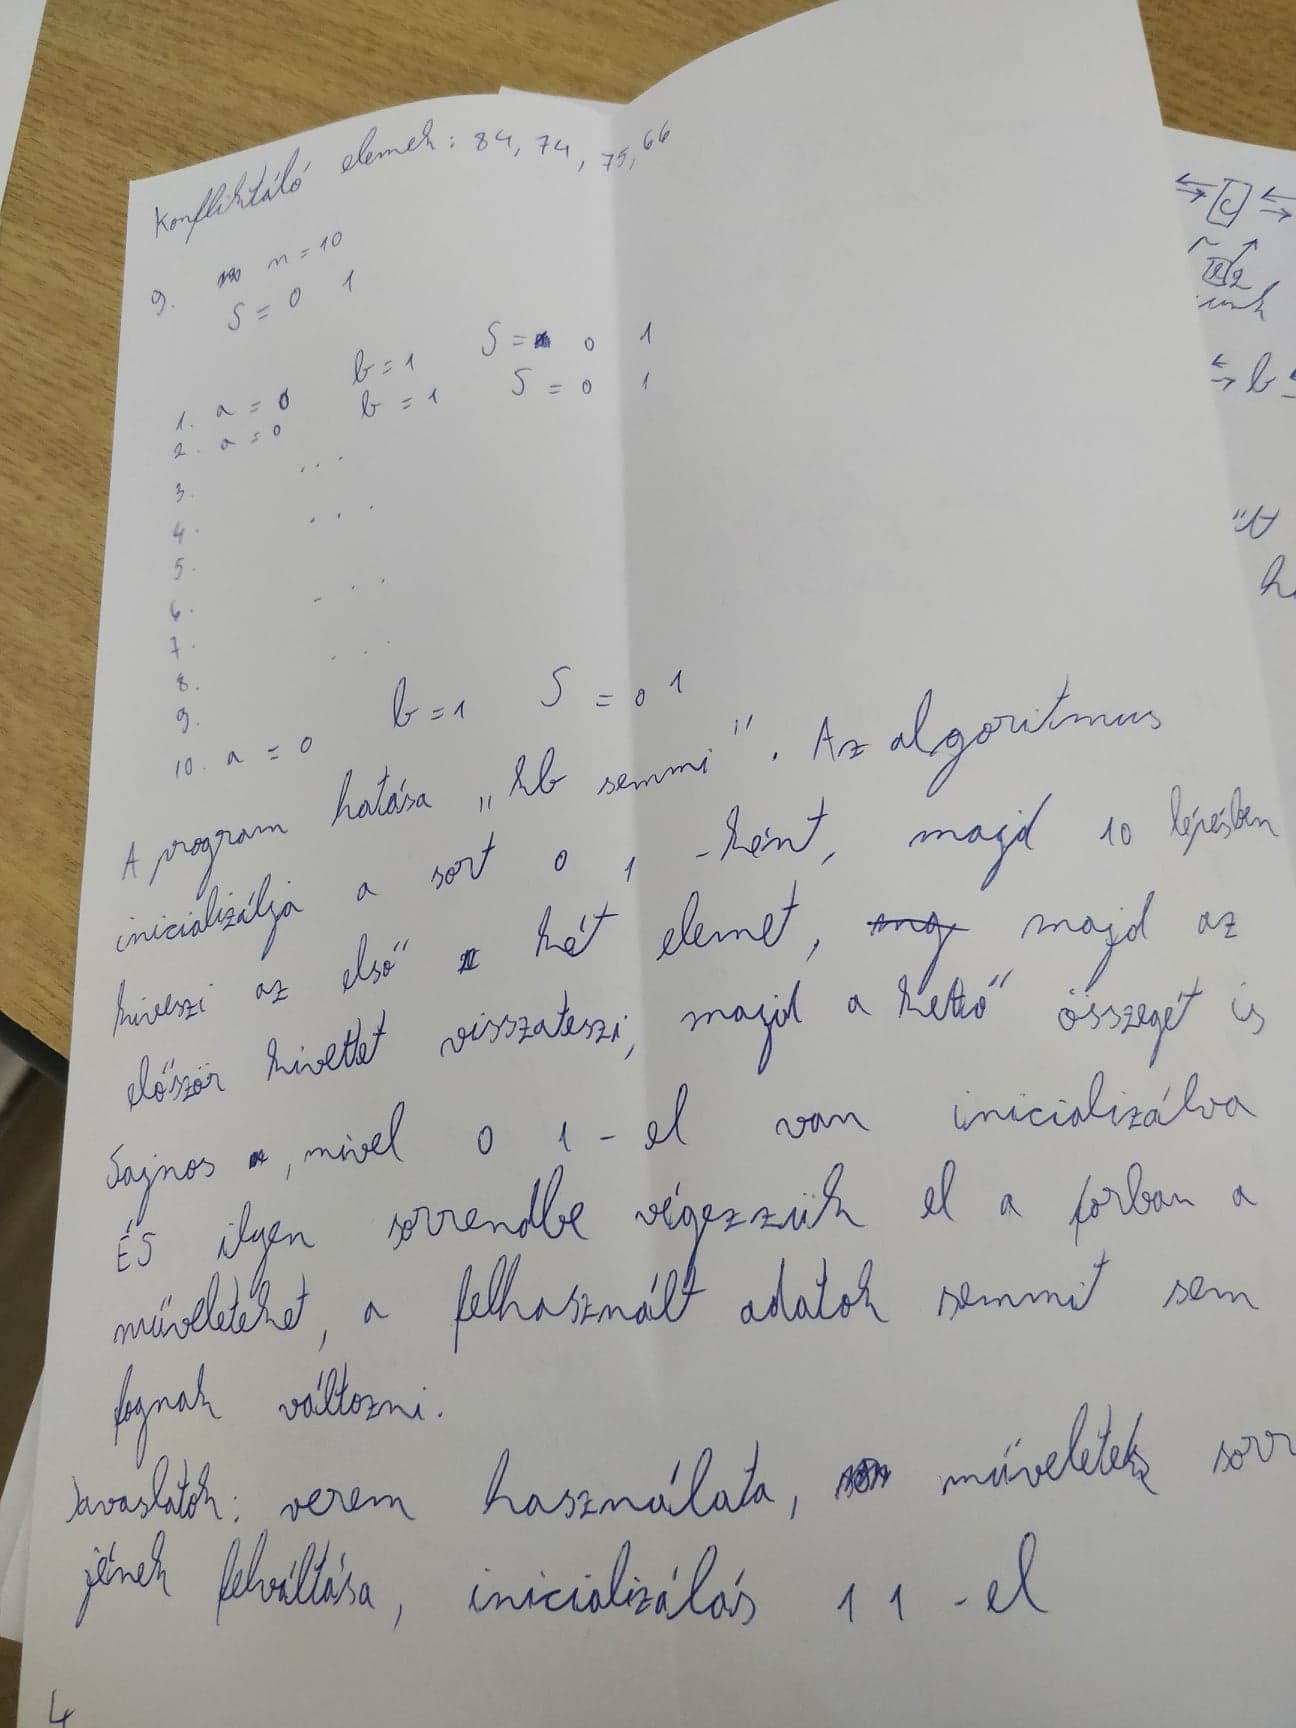 Konfliktáló elemek: 84, 74, 75, 66
9. n = 10
S = 0 1
1. a = 0 b = 1 S = 0 1
2. a = 0 b = 1 S = 0 1
3. ...
4. ...
5.
6. ...
7.
8. ...
9.
10. a = 0 b = 1 S = 0 1
A program hatása „kb semmi". Az algoritmus
inicializálja a sort 0 1 -ként, majd 10 lépésben
kiveszi az első két elemet, majd az
először kivettet visszateszi, majd a kettő összegét is
Sajnos, mivel 0 1 - el van inicializálva
ÉS ilyen sorrendbe végezzük el a forban a
műveleteket, a felhasznált adatok semmit sem
fognak változni.
Javaslatok: verem használata, műveletek sorr
jének felváltása, inicializálás 1 1 -el
4
C
b